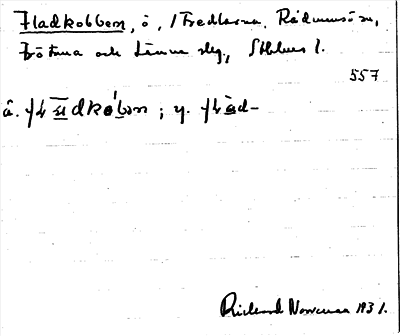 Fladkobben, ö, i Fredlarna, Rådmansö sn,
Frötuna och Länna slg, Sthlms l.
557
ä. flădkòbən; y. flàd-
Rickard Norman 1931.